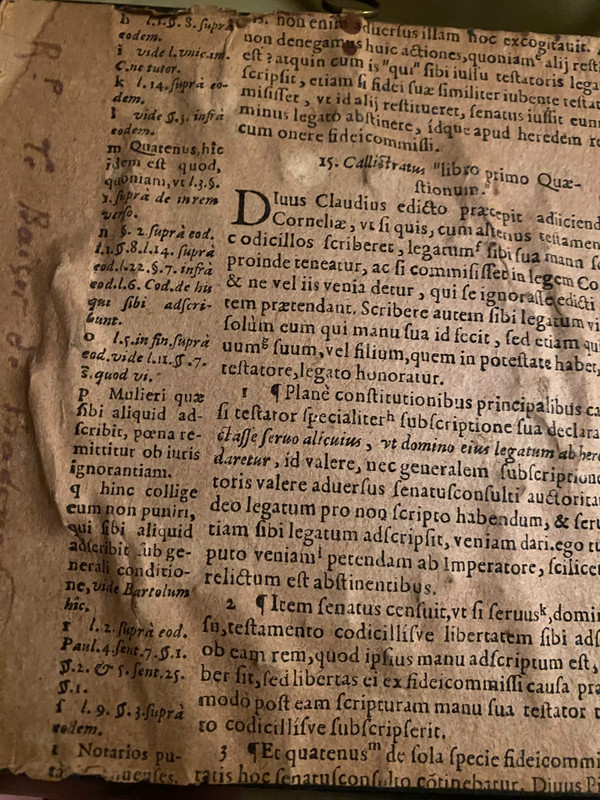 h l.1.§.8.suprà
eodem.
i vide l.vnic.in.
C.ne tutor.
k l.14.suprà eo-
dem.
l vide §.3. infrà
eodem.
m Quatenus,hîc
idem est quod,
quoniam,vt l.3.§.
3.suprà de in rem
verso.
n §. 2. suprà eod.
l.1.§.8.l.14. suprà
eod.l.22.§.7. infrà
eod.l.6. Cod.de his
qui sibi adscri-
bunt.
o l.5.in fin.suprà
eod.vide l.11.§.7.
ƺ.quod vi.
p Mulieri quæ
sibi aliquid ad-
scribit, pœna re-
mittitur ob iuris
ignorantiam.
q hinc collige
eum non puniri,
qui sibi aliquid
adscribit sub ge-
nerali conditio-
ne, vide Bartolum
hîc.
r l.2.suprà eod.
Paul.4.sent.7.§.1.
§.2. & 5.sent.25.
§.1.
s l. 9. §.3.suprà
eodem.
t Notarios pu-
non enim aduersus illam hoc excogitauit.
non denegamus huic actiones,quoniamᵉ alij
est? atquin cum is "qui" sibi iussu testatoris
scripsit, etiam si fidei suæ similiter iubente
misisset, vt id alij restitueret, senatus iussit
minus legato abstinere, idque apud heredem
cum onere fideicommissi.
15. Callistratus "libro primo Quæ-
stionum."
DIuus Claudius edicto præcepit adiiciend
Corneliæ, vt si quis, cum alterius testamen
codicillos scriberet, legatumᶠ sibi sua manu
proinde teneatur, ac si commisisset in legem Co
& ne vel iis venia detur, qui se ignorasse edicti
tem prætendant. Scribere autem sibi legatum vi
solùm eum qui manu sua id fecit, sed etiam qui
uumᵍ suum,vel filium,quem in potestate habet,
testatore,legato honoratur.
1 ¶Planè constitutionibus principalibus ca
si testator specialiterʰ subscriptione sua declara
classe seruo alicuius, vt domino eius legatum ab
daretur, id valere, nec generalem subscription
toris valere aduersus senatusconsulti auctorita
deo legatum pro non scripto habendum, & ser
tiam sibi legatum adscripsit, veniam dari.ego
puto veniamⁱ petendam ab Imperatore, scilicet
relictum est abstinentibus.
2 ¶Item senatus censuit,vt si seruusᵏ,domin
su,testamento codicillísve libertatem sibi ads
ob eam rem,quod ipsius manu adscriptum est,
ber sit,sed libertas ei ex fideicommissi causa præ
modò post eam scripturam manu sua testator
to codicillísve subscripserit.
3 ¶Et quatenusᵐ de sola specie fideicommi
tatis hoc senatusconsulto cõtinebatur, Diuus Pi